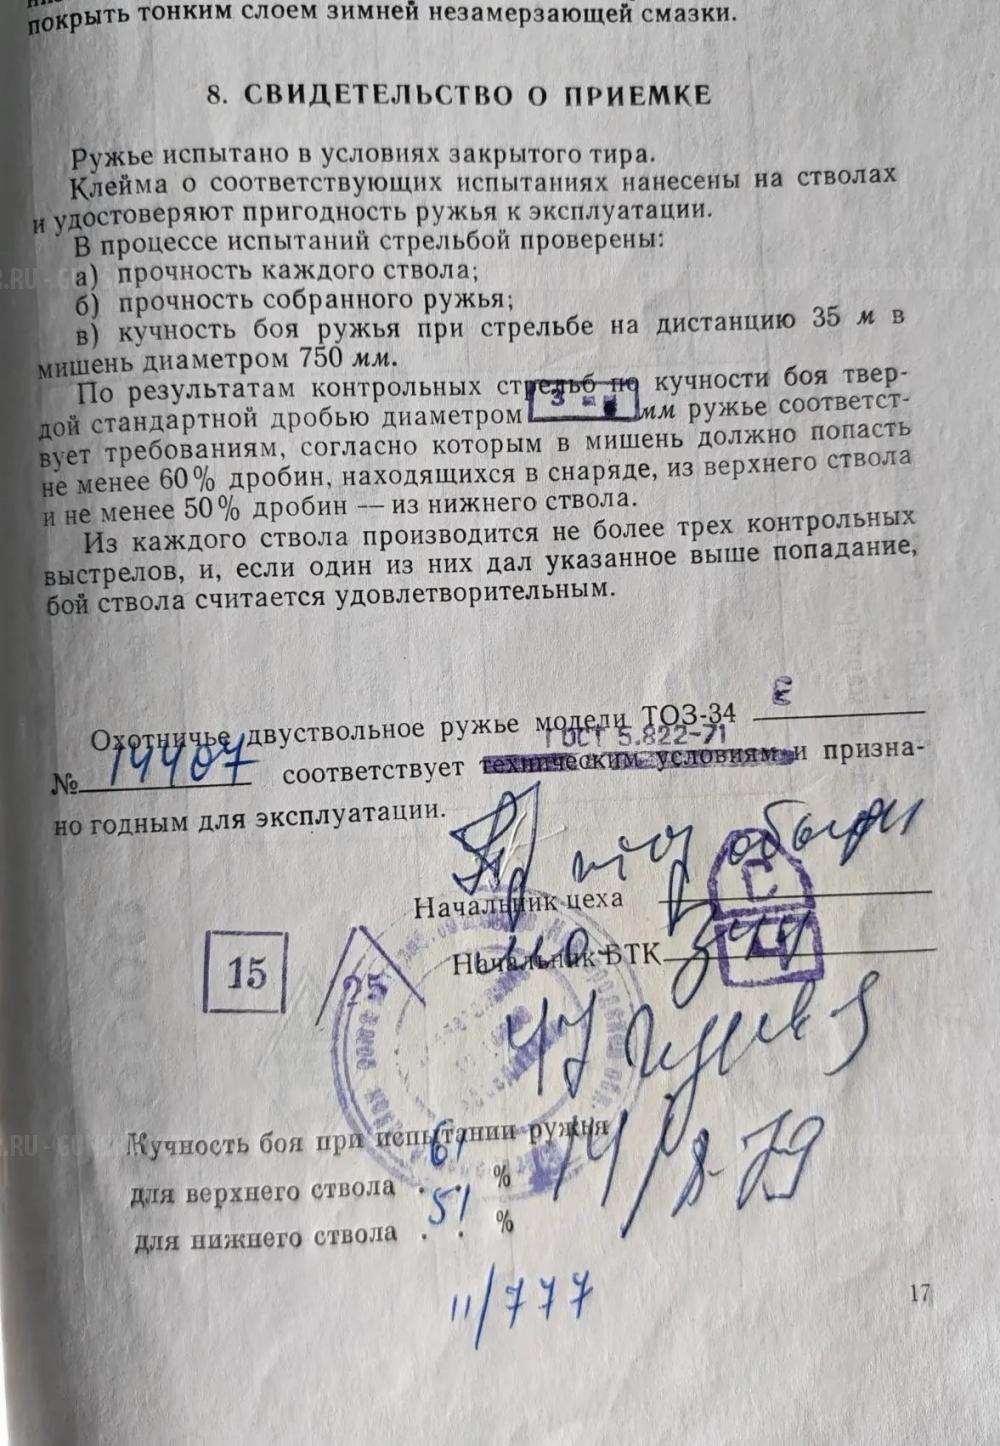 покрыть тонким слоем зимней незамерзающей смазки.
8. СВИДЕТЕЛЬСТВО О ПРИЕМКЕ
Ружье испытано в условиях закрытого тира.
Клейма о соответствующих испытаниях нанесены на стволах
и удостоверяют пригодность ружья к эксплуатации.
В процессе испытаний стрельбой проверены:
а) прочность каждого ствола;
б) прочность собранного ружья;
в) кучность боя ружья при стрельбе на дистанцию 35 м в
мишень диаметром 750 мм.
По результатам контрольных стрельб по кучности боя твер-
дой стандартной дробью диаметром 3 мм ружье соответст-
вует требованиям, согласно которым в мишень должно попасть
не менее 60% дробин, находящихся в снаряде, из верхнего ствола
и не менее 50% дробин — из нижнего ствола.
Из каждого ствола производится не более трех контрольных
выстрелов, и, если один из них дал указанное выше попадание,
бой ствола считается удовлетворительным.
Охотничье двуствольное ружье модели ТОЗ-34 Е
ГОСТ 5.822-71
№ 14407 соответствует техническим условиям и призна-
но годным для эксплуатации.
Начальник цеха
С
Начальник БТК
15
25
Кучность боя при испытании ружья
для верхнего ствола . 61 . %
для нижнего ствола . 51 . %
14/8-79
11/777
17